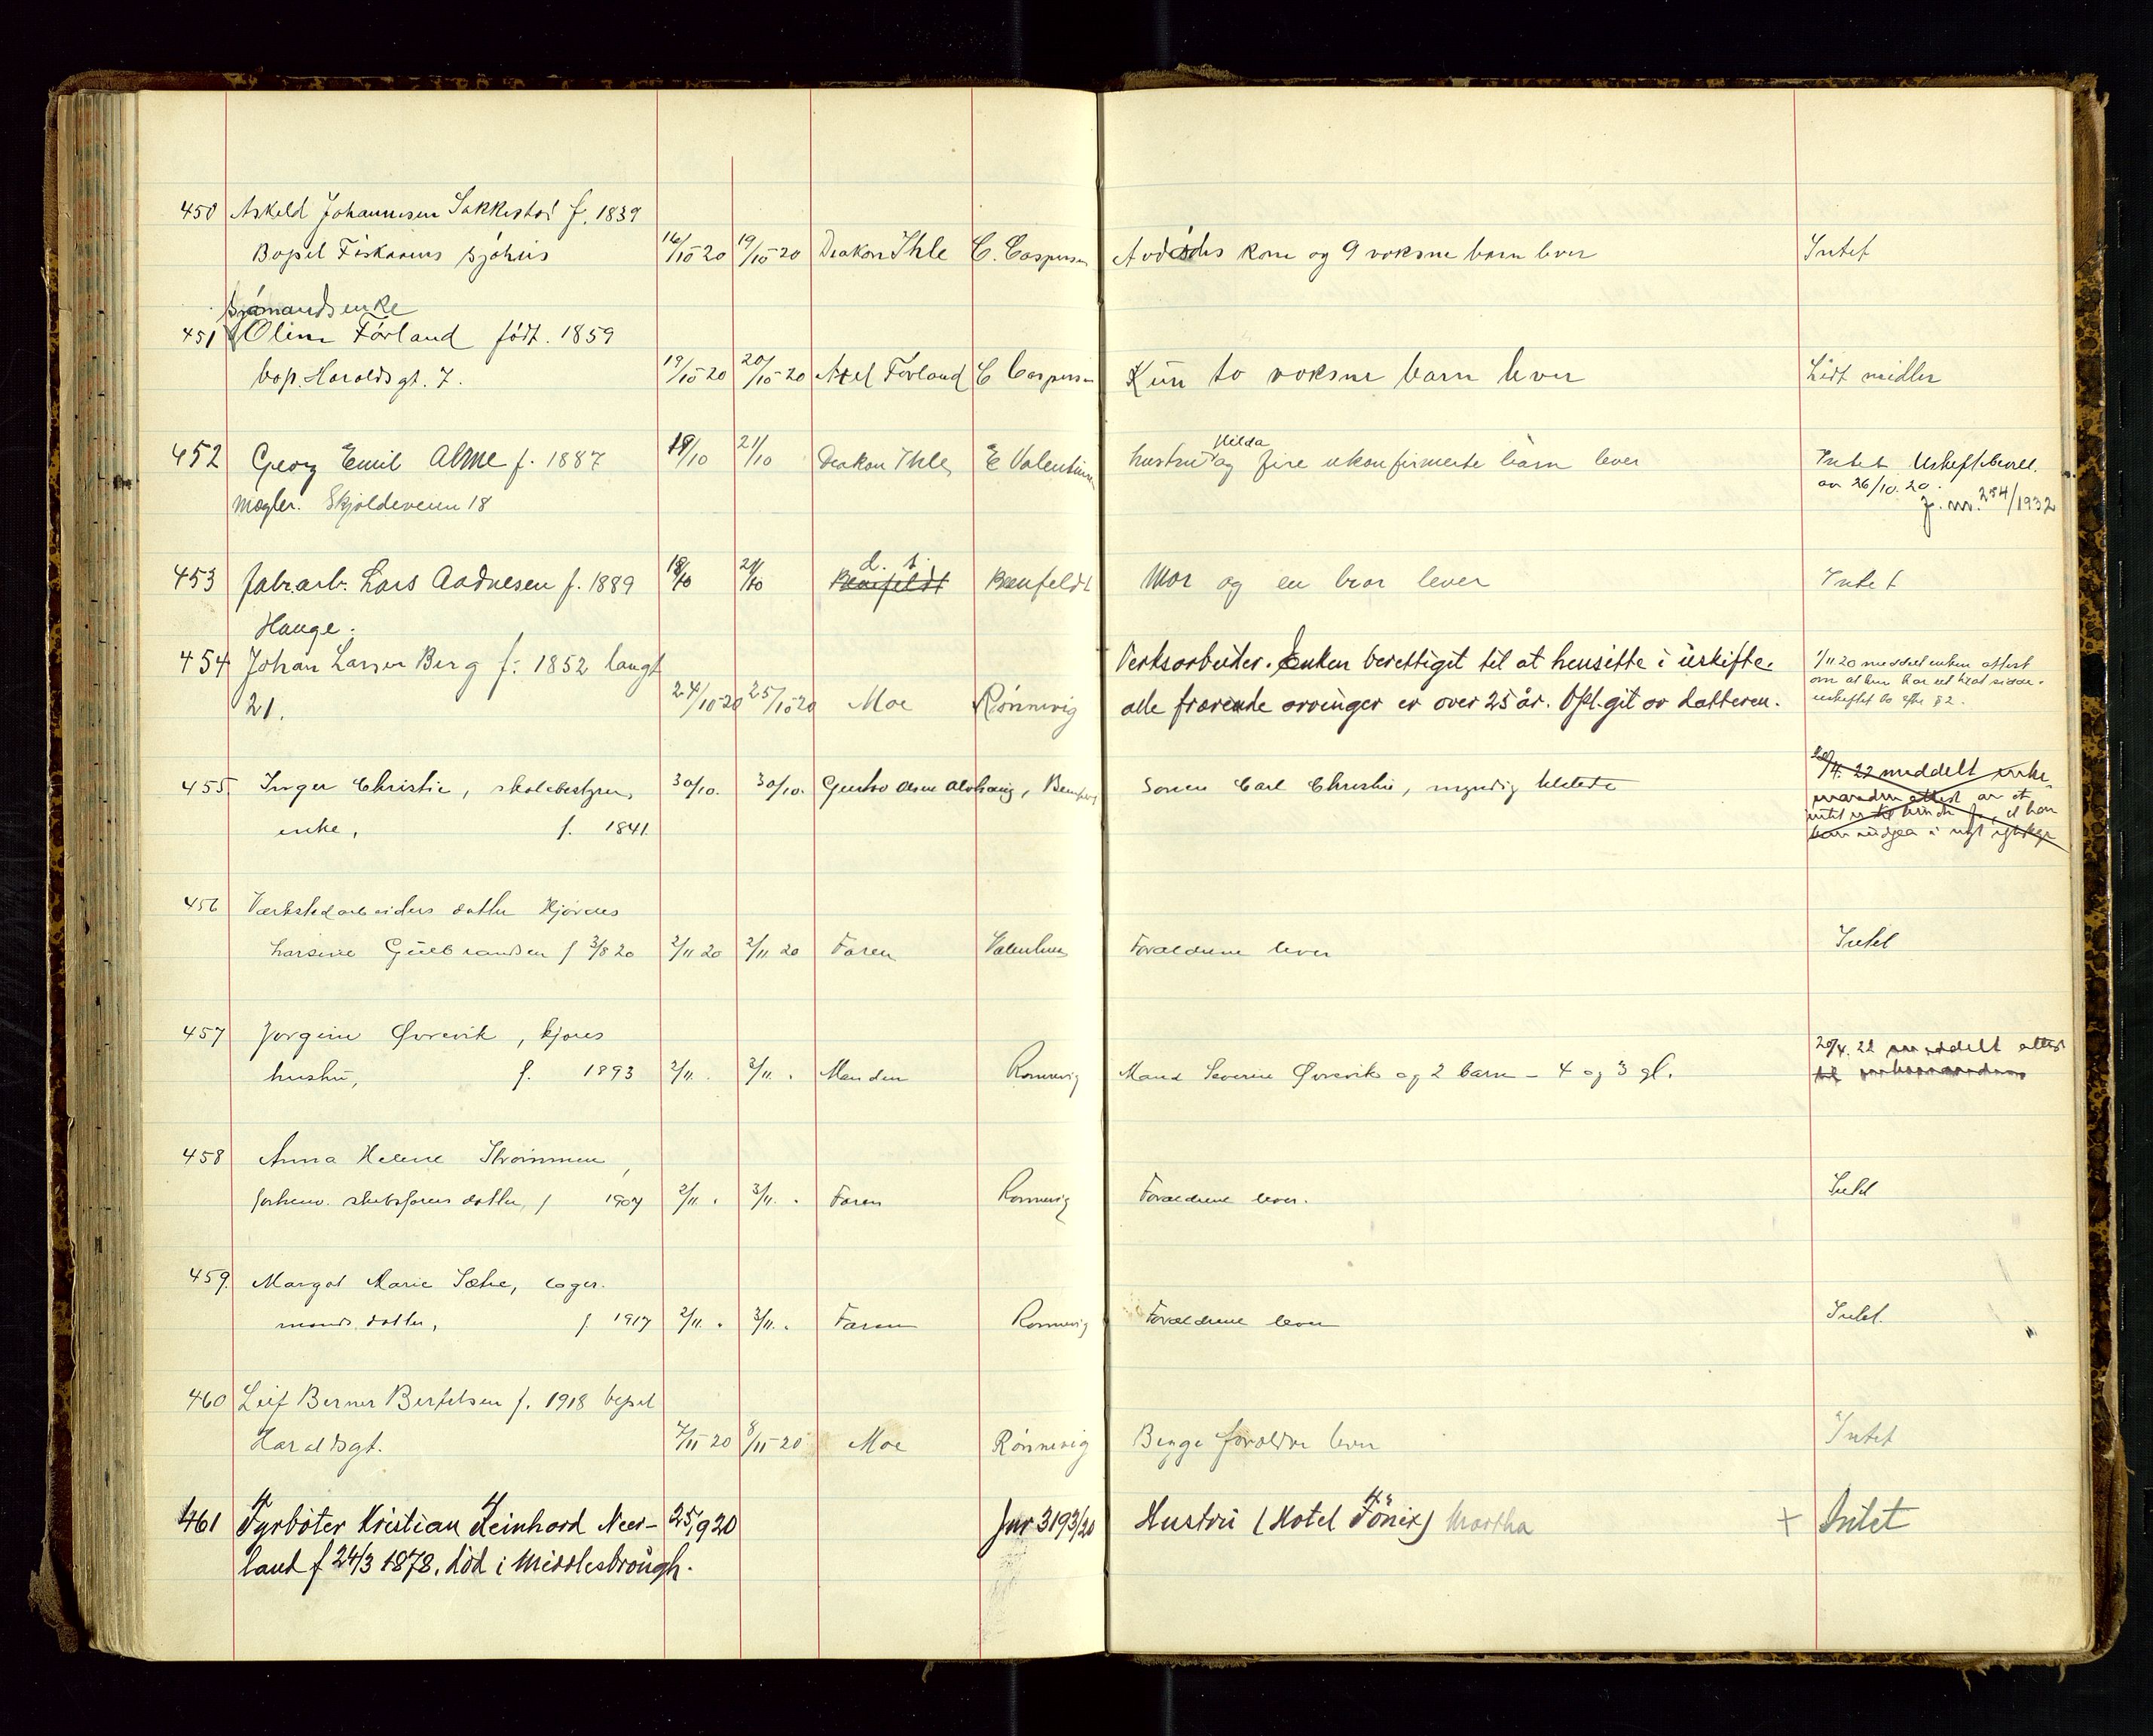 450 Askeld Johannesen Sakkestad f. 1839
Bopel Fiskarens sjøhus 16/10-20 19/10-20 Diakon Ihle C. Caspersen Avdødes kone og 9 voksne barn lever Intet
Sjømandsenke
451 Oline Førland født. 1859
bop. Haraldsgt. 7. 19/10-20 20/10-20 Axel Førland C Caspersen Kun to voksne barn lever Lidt midler
452 Georg Emil Alme f. 1887 19/10 21/10 Deakon Ihle E Valentinsen hustru Hilda og fire ukonfirmerte barn lever Intet Uskiftebevill.
av 26/10.20.
Mægler. Skjoldeveien 18 J. nr. 254/1932
453 fabr.arb. Lars Aadnesen f. 1889 18/10 21/10 d. s. Benfeldt Benfeldt Mor og en bror lever Intet
Hauge.
454 Johan Larsen Berg f. 1852 Langt
21. 24/10-20 25/10-20 Moe Rönnevig
Verksarbeider. Enken berettiget til at hensitte i uskifte.
alle fraværende arvinger er over 25 år. Opl. git av datteren.
1/11 20 meddelt enken attest
om at hun har ret til at sidde i
uskiftet bo efter § 2.
455 Inger Christie, skolebestyrer 30/10. 30/10. Gustav Arne Alvhaug, Benfeldt Sonen Carl Christie, myndig tilstede
enke, f. 1841.
/4. 22 meddelt enke
manden attest om at
intet er til hinder for at han
kan indgaa i nyt egteskap
456 Værkstedarbeiders datter Hjørdis
Larsine Gulbrandsen f 3/8 20 2/11 20 2/11 20 Faren Valentinsen Forældrene lever Intet
457 Jorgine Øvrevik, kjøres
hustru, f. 1893 2/11. 3/11. Manden Ronnevig Mand Severin Øvrevik og 2 barn – 4 og 3 gl.
20/4. 22 meddelt attest
til enkemanden
458 Anna Helene Strømmen,
forhenv. skibsførers datter, f 1907 2/11. 3/11. Faren Ronnevig Forældrene lever. Intet
459. Margot Marie Sæthe, lager.
mands datter, f 1917 2/11. 3/11. Faren Ronnevig Forældrene lever Intet.
460 Leif Berner Bertelsen f. 1918 bopel
Haraldsgt. 7/11-20 8/11-20 Moe Rönnevig Begge forældre lever Intet
461 Fyrbøter Kristian Reinhard Neer- 25/9 20 Jnr 3193/20 Hustru (Hotel Fönix) Martha + Intet
land f 24/3 1878. död i Middlesbrough.